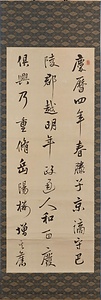 慶曆四年春滕子京謫守巴
陵郡越明年政通人和百廢
俱興乃重脩岳陽樓增其舊